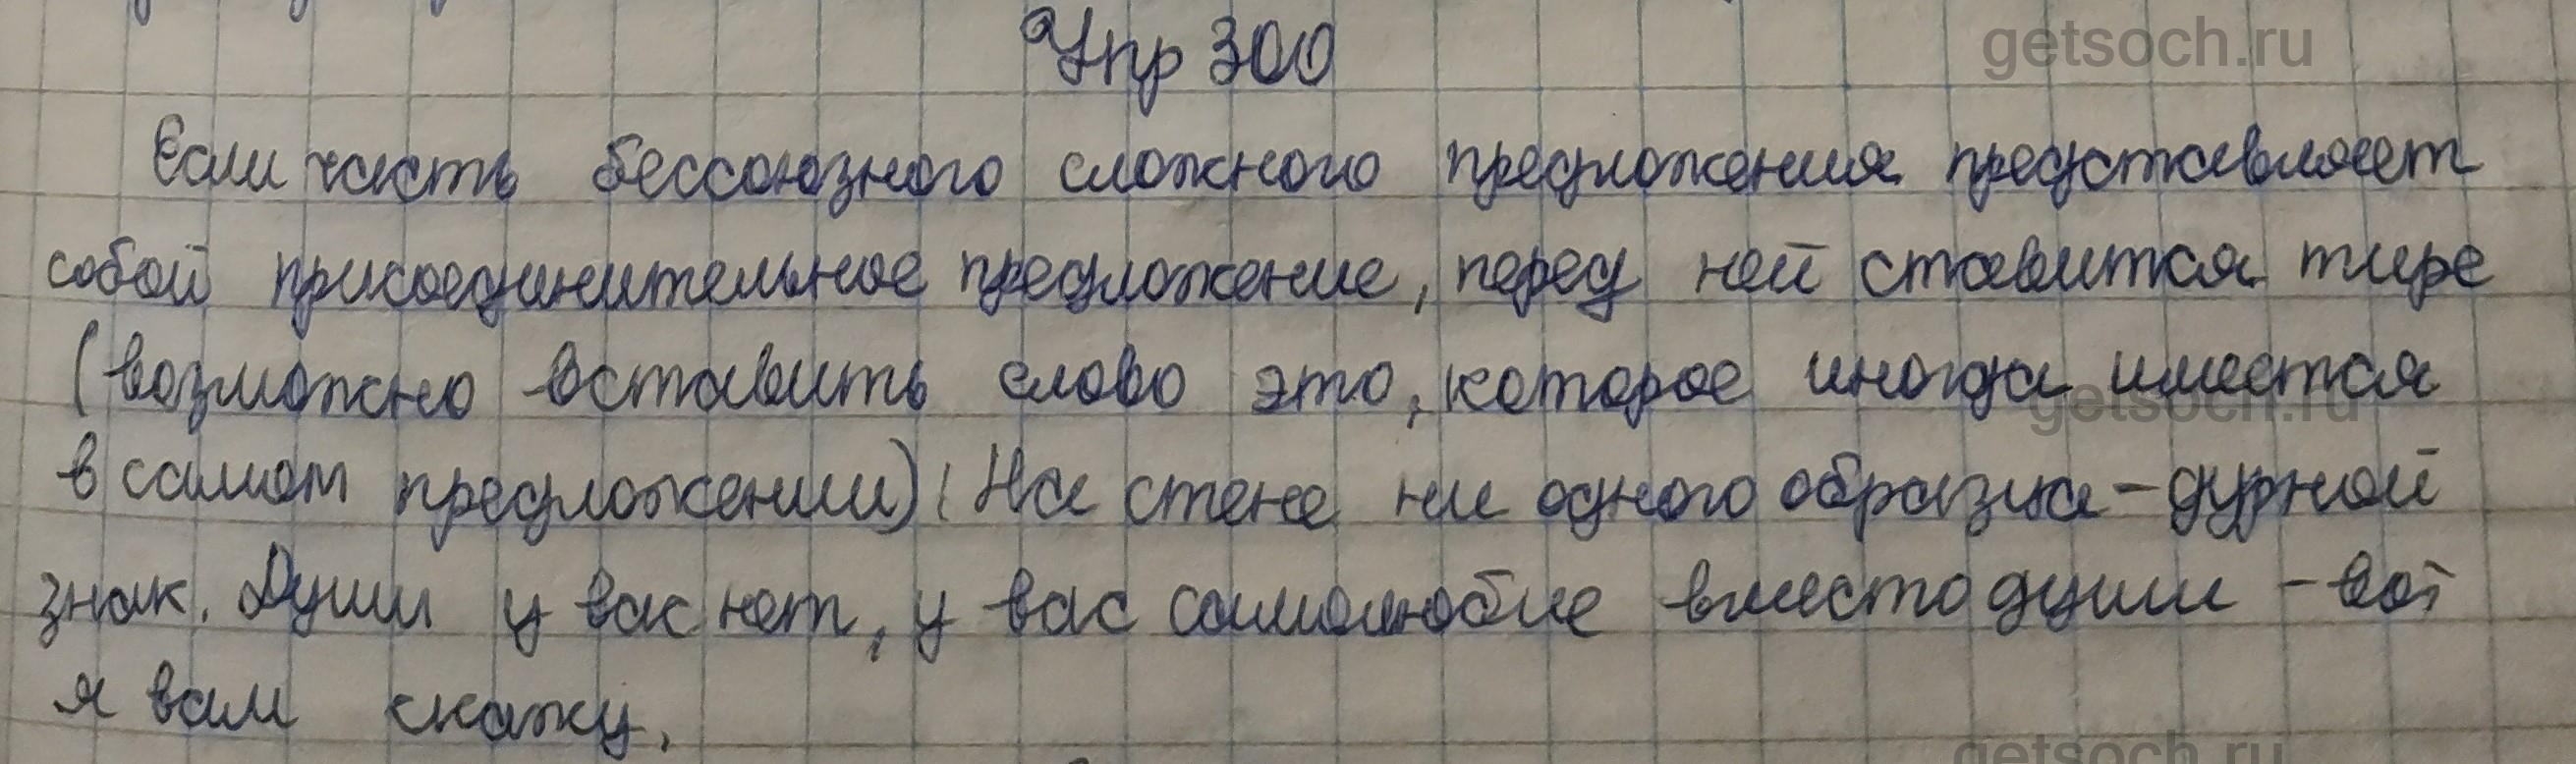 Упр 300
getsoch.ru
Если часть бессоюзного сложного предложения представляет
собой присоединительное предложение, перед ней ставится тире
(возможно вставить слово это, которое иногда имеется
getsoch.ru
в самом предложении): На стене ни одного образа - дурной
знак. Души у вас нет, у вас самолюбие вместо души - вот
я вам скажу.
getsoch.ru